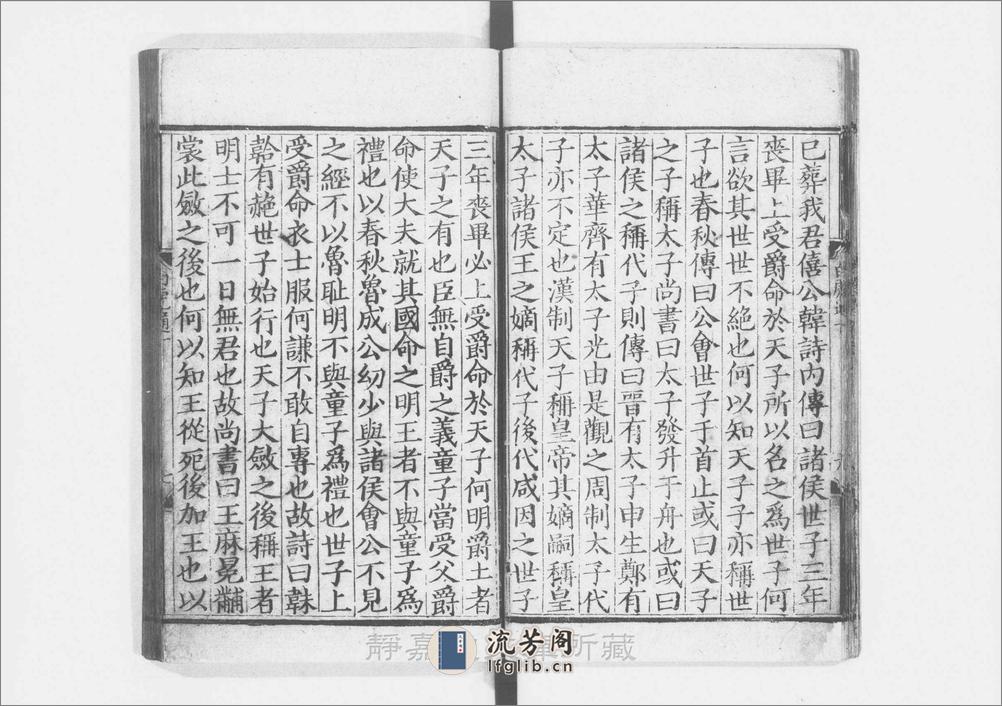 已葬我君僖公韓詩內傳曰諸侯世子三年
喪畢上受爵命於天子所以名之為世子何
言欲其世世不絶也何以知天子子亦稱世
子也春秋傳曰公會世子于首止或曰天子
之子稱太子尚書曰太子發升于舟也或曰
諸侯之稱代子則傳曰晉有太子申生鄭有
太子華齊有太子光由是觀之周制太子代
子亦不定也漢制天子稱皇帝其嫡嗣稱皇
太子諸侯王之嫡稱代子後代咸因之世子
三年喪畢必上受爵命於天子何明爵土者
天子之有也臣無自爵之義童子當受父爵
命使大夫就其國命之明王者不與童子為
禮也以春秋魯成公幼少與諸侯會公不見
之經不以魯耻明不與童子為禮也世子上
受爵命衣士服何謙不敢自專也故詩曰韎
韐有赩世子始行也天子大斂之後稱王者
明士不可一日無君也故尚書曰王麻冕黼
裳此斂之後也何以知王從死後加王也以
靜嘉 所藏
流芳阁
lfglib.cn